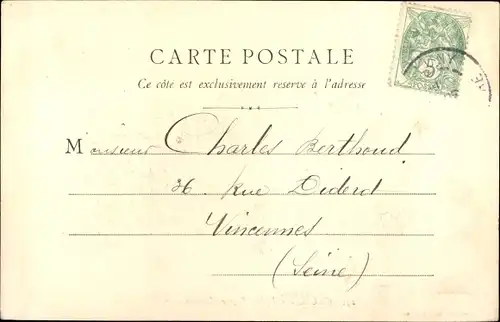 CARTE POSTALE
Ce côté est exclusivement reserve à l'adresse
Monsieur Charles Berthoud
36, Rue Diderot
Vincennes
(Seine)
5
POSTES